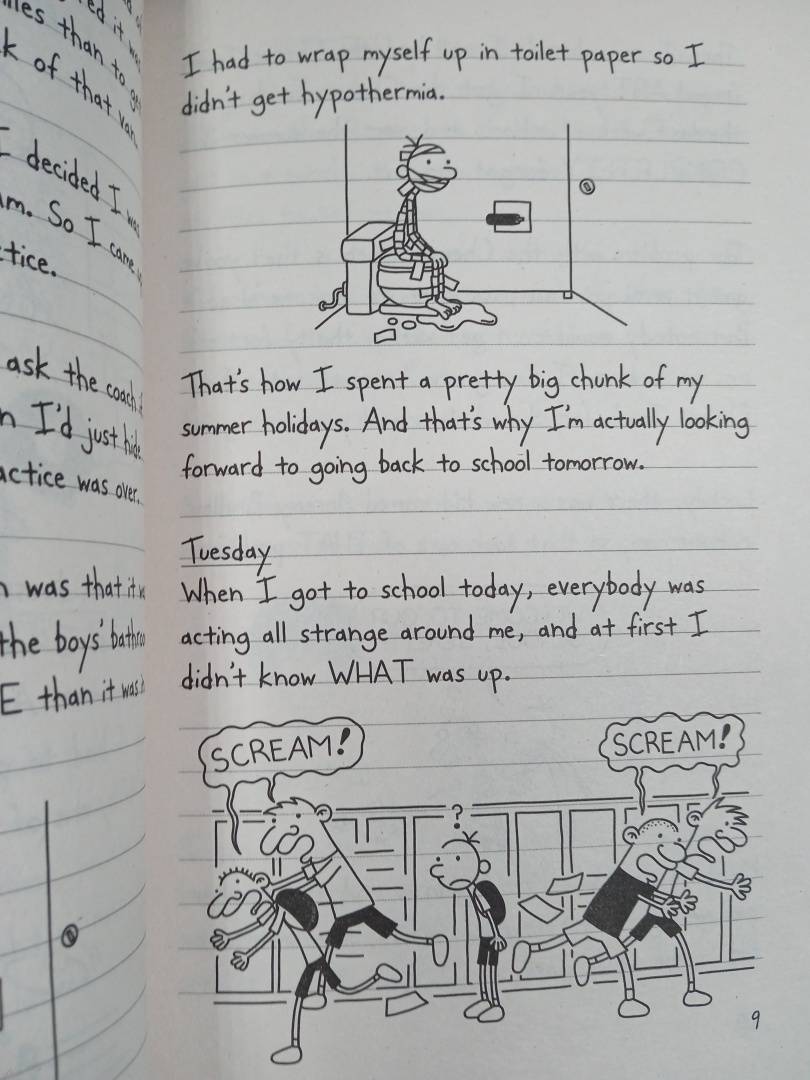 les than to
k of that van.
I decided I was
am. So I came
tice.
ask the coach
n I'd just hide
actice was over.
n was that it
the boys'
E than it was
I had to wrap myself up in toilet paper so I
didn't get hypothermia.
That's how I spent a pretty big chunk of my
summer holidays. And that's why I'm actually looking
forward to going back to school tomorrow.
Tuesday
When I got to school today, everybody was
acting all strange around me, and at first I
didn't know WHAT was up.
SCREAM!
SCREAM!
?
9